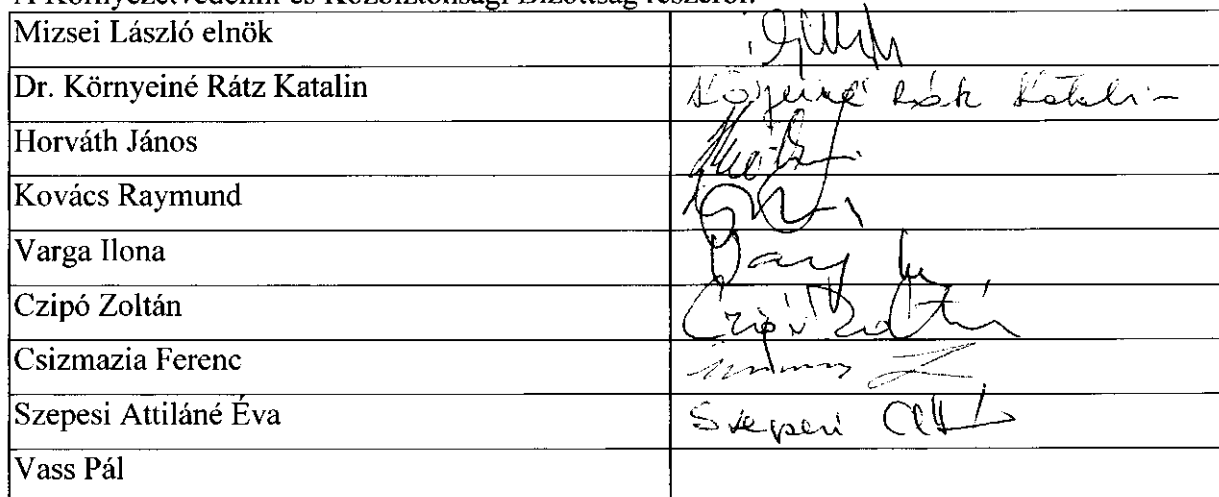 A Környezetvédelmi és Közbiztonsági Bizottság részéről:
Mizsei László elnök
Dr. Környeiné Rátz Katalin Környeiné Rátz Katalin
Horváth János
Kovács Raymund
Varga Ilona
Czipó Zoltán Czipó Zoltán
Csizmazia Ferenc
Szepesi Attiláné Éva Szepesi
Vass Pál